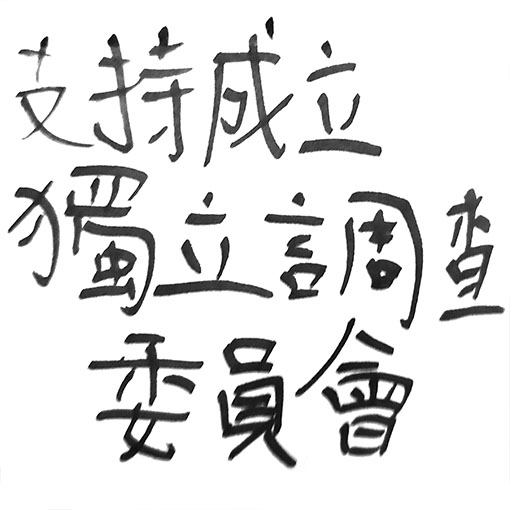 支持成立
獨立調查
委員會